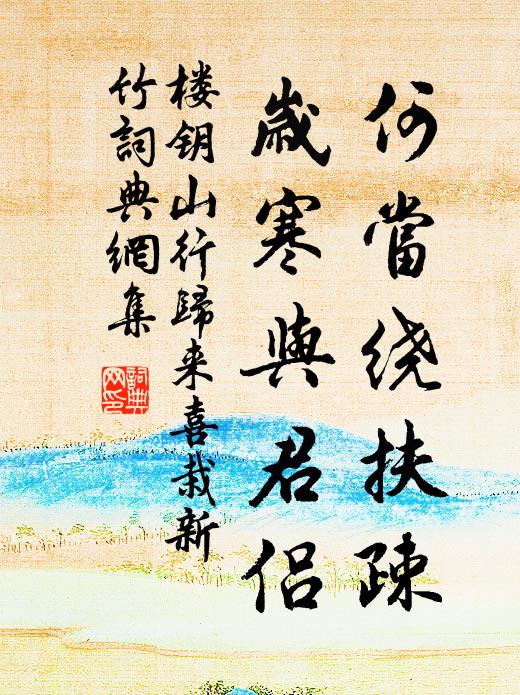 何當绕扶疎
歲寒與君侣
楼钥山行歸来喜栽新
竹詞典網集